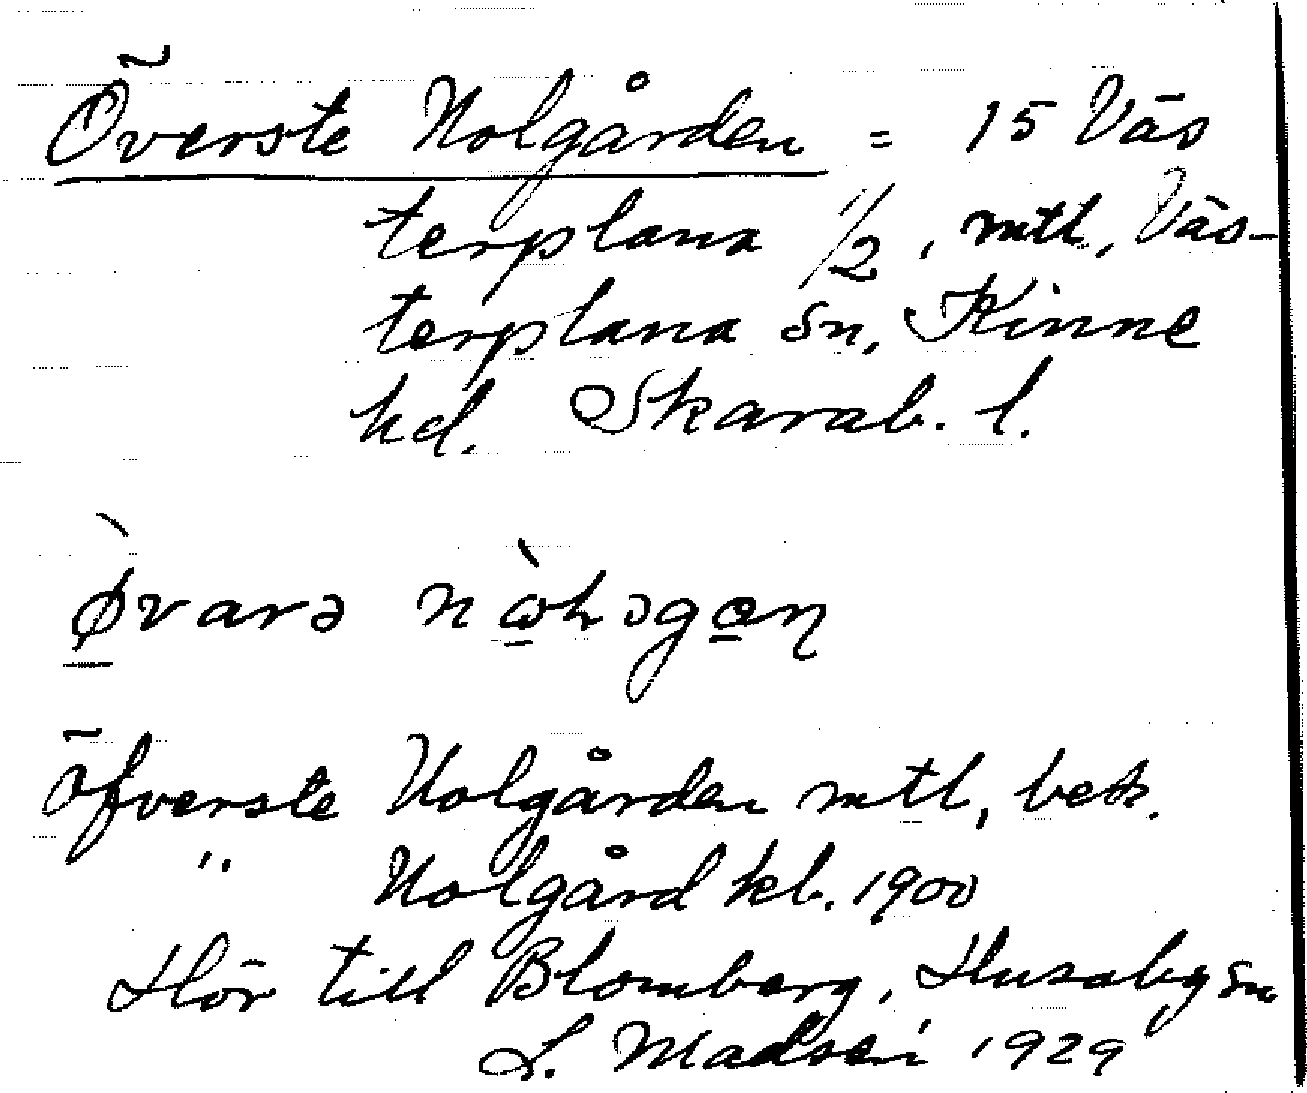 Överste Nolgården = 15 Väs
terplana 1/2, mtl, Väs-
terplana sn, Kinne
hd. Skarab. l.
Öfverste Nolgården mtl, bek.
" Nolgård kb. 1900
Hör till Blomberg, Husaby sn
L. Madsén 1929